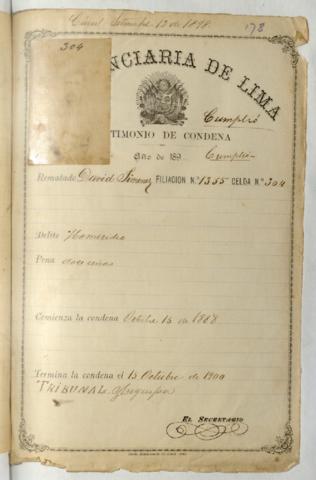 Setiembre 13 de 1898
178
304
NCIARIA DE LIMA
Cumplió
TIMONIO DE CONDENA
Año de 189
Cumplió
Rematado David Jimenez FILIACION N.º 1355 CELDA N.º 304
Delito Homicidio
Pena doce años
Comienza la condena Octubre 13 de 1888
Termina la condena el 13 Octubre de 1900
TRIBUNAL Arequipa
EL SECRETARIO